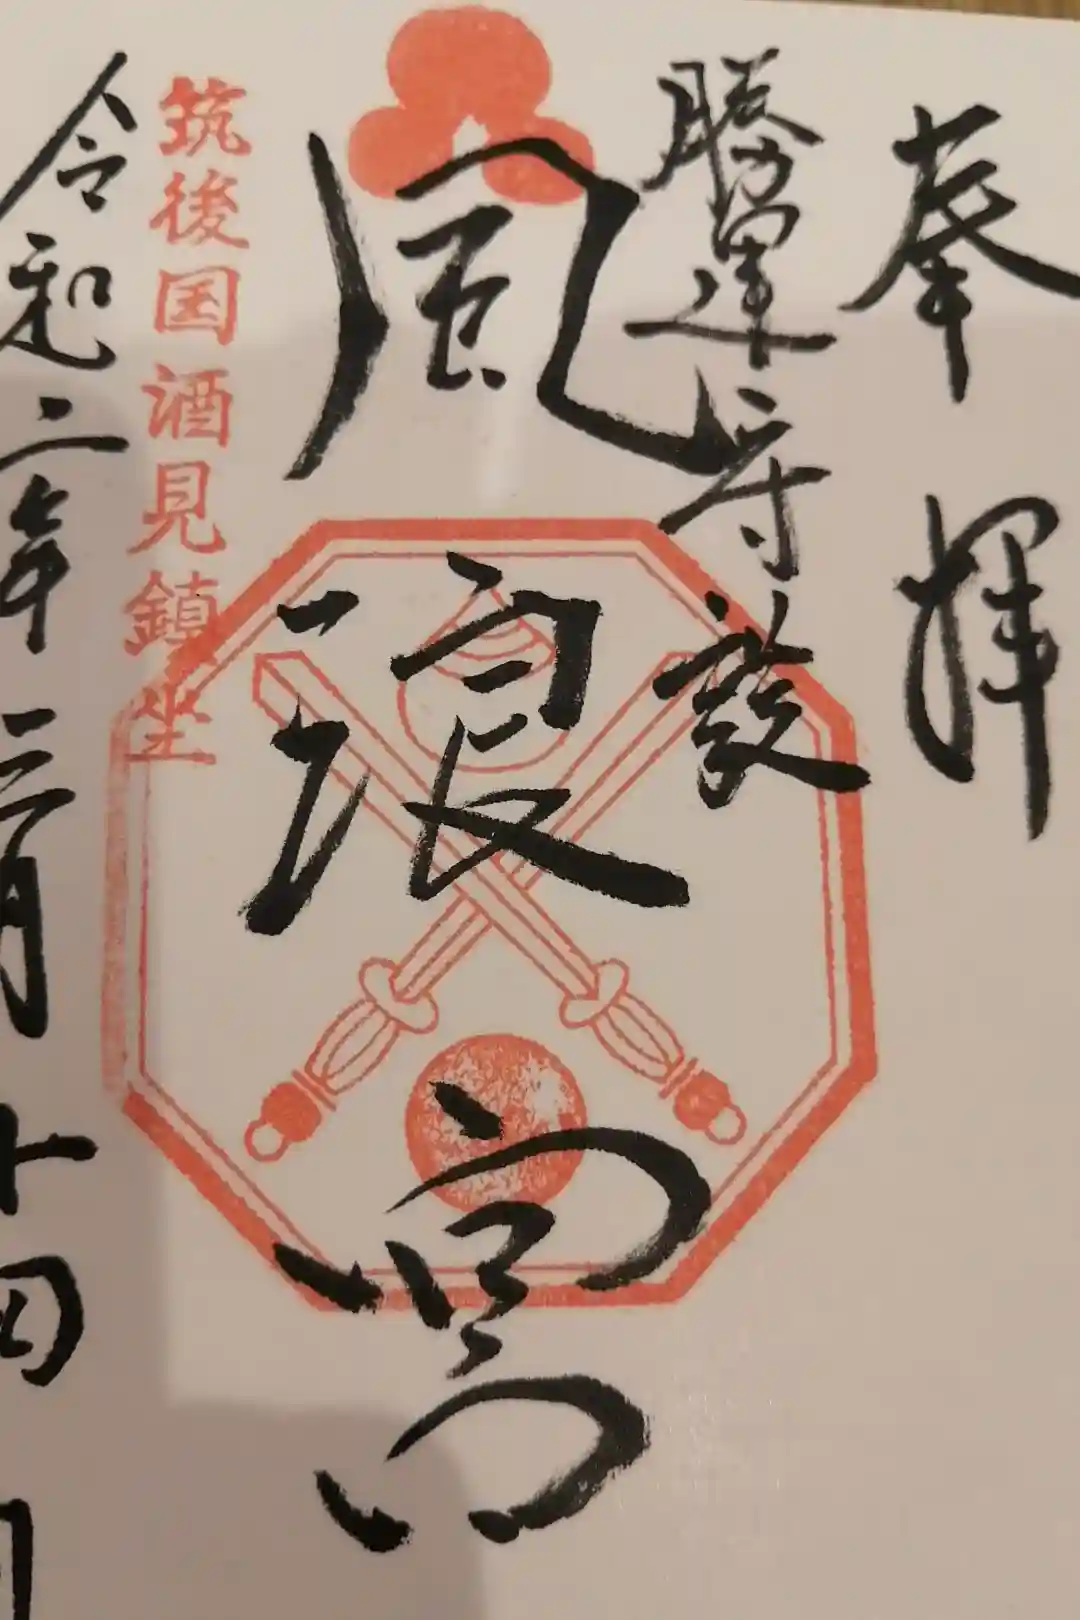 奉拝
勝運守護
風浪宮
筑後国酒見鎮坐
令和二年三月十四日